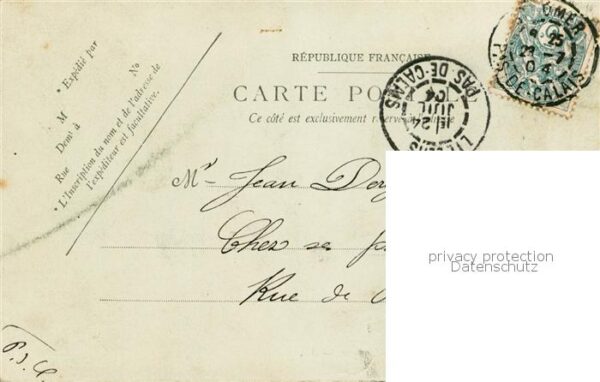 RÉPUBLIQUE FRANÇAISE
CARTE PO
Ce côté est exclusivement réservé
* Expédié par
M
Demt à
Rue No
* L'Inscription du nom et de l'adresse de
l'expéditeur est facultative.
OMER
PAS-DE-CALAIS
PAS-DE-CALAIS
24
JUIL
04
Mr Jean
Chez ses
Rue de
privacy protection
Datenschutz